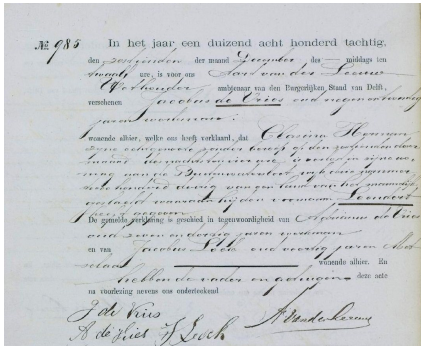 № 985 In het jaar een duizend acht honderd tachtig,
den zestienden der maand December des — middags ten
twaalf ure, is voor ons Aart van der Leeuw
Wethouder ambtenaar van den Burgerlijken Stand van Delft,
verschenen Jacobus de Vries oud negenentwintig
jaren werkman
wonende alhier, welke ons heeft verklaard, dat Clasina
zyne echtgenoote zonder beroep op den
maand des nachts ten vier ure is bevallen in zijne wo-
ning aan de wyk drie nummer
honderd dertig van een kind van het mannelijk
geslacht waaraan hij den voornaam Leendert
heeft gegeven
De gemelde verklaring is geschied in tegenwoordigheid van Adrianus de Vries
oud zeven en dertig jaren werkman
en van Jacobus oud veertig jaren
wonende alhier. En
hebben de vader en getuigen deze acte
na voorlezing nevens ons onderteekend
J de Vries
A de Vries
A van der Leeuw